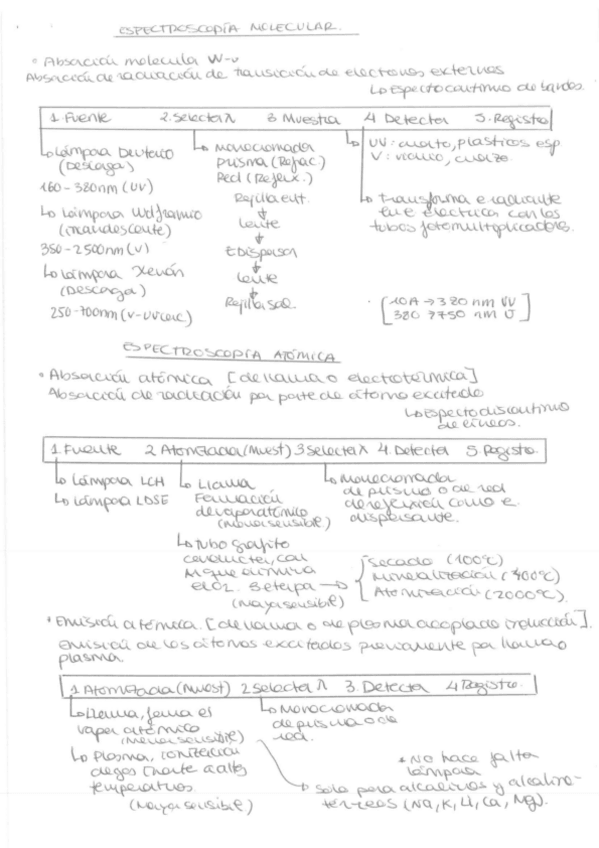 ESPECTROSCOPÍA MOLECULAR.
• Absorción molecula W-v
Absorción de radiación de transición de electrones externos
↳ Espectro continuo de bandas.
1. Fuente 2. Selector λ 3 Muestra 4 Detector 5. Registro
↳ Lámpara Deuterio
(Descarga)
160-380nm (UV)
↳ Lámpara Wolframio
(incandescente)
350-2500nm (V)
↳ Lámpara Xenón
(Descarga)
250-700nm (V-UVcerc.)
↳ Monocromador
prisma (Refrac.)
Red (Reflex.)
Rejilla ent.
↓
Lente
↓
E Dispersor
↓
Lente
↓
Rejilla sal.
↳ UV: cuarzo, plasticos esp
V: vidrio, cuarzo.
↳ transforma e radiante
en e electrica con los
tubos fotomultiplicadores.
[10A → 380 nm UV
380 → 750 nm V]
ESPECTROSCOPÍA ATÓMICA
• Absorción atómica [de llama o electrotérmica]
Absorción de radiación por parte de átomo excitado
↳ Espectro discontinuo
de líneas.
1. Fuente 2 Atomizador (Muest) 3 Selector λ 4. Detector 5 Registro.
↳ Lámpara LCH
↳ Lámpara LDSE
↳ Llama
Formación
de vapor atómico
(menor sensible)
↳ tubo grafito
conductor, con
Ar que elimina
el O2. 3 etapas →
(mayor sensible)
Secado (100ºC)
Mineralización (400ºC)
Atomización (2000ºC).
↳ Monocromador
de prisma o de red
de reflexión como e.
dispersante.
• Emisión atómica. [de llama o de plasma acoplado inducción].
emisión de los átomos excitados previamente por llama o
plasma.
1 Atomizador (Muest) 2 Selector λ 3. Detector 4 Registro.
↳ Llama, forma el
vapor atómico
(Menor sensible)
↳ Plasma, ionización
de gas (Norte a altas
temperaturas
(Mayor sensible)
↳ Monocromador
de prisma o de
red.
* No hace falta
lámpara
→ Solo para alcalinos y alcalino-
térreos (Na, K, Li, Ca, Mg).